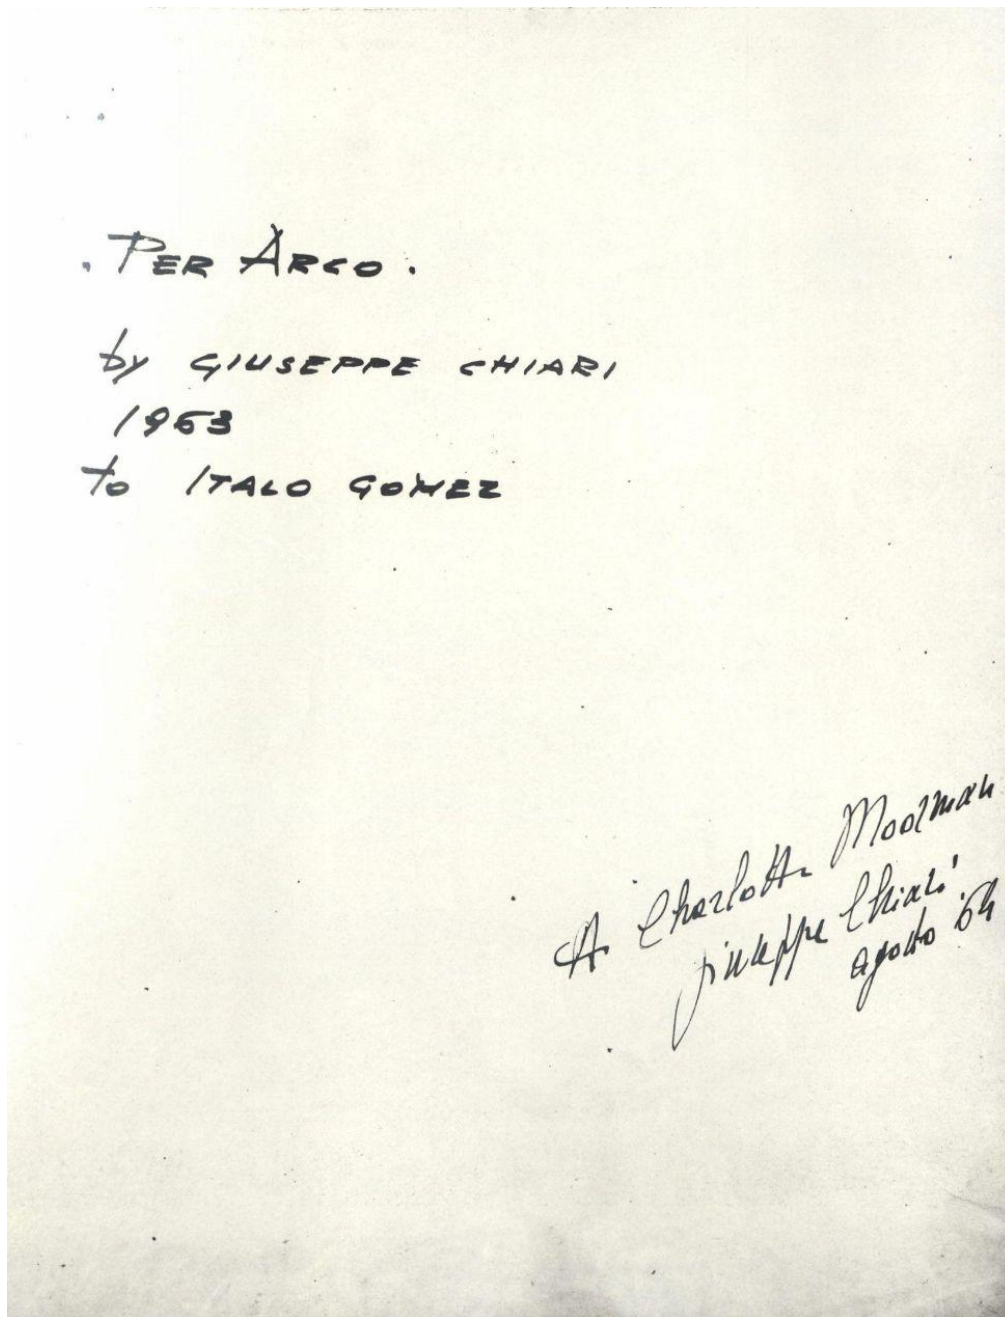 . PER ARCO .
by GIUSEPPE CHIARI
1963
to ITALO GOMEZ
A Charlotte Moorman
Giuseppe Chiari
agosto '64